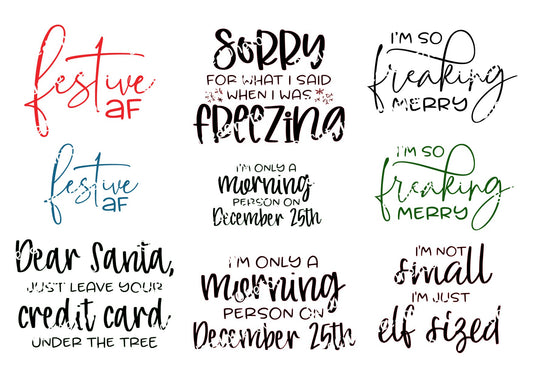 festive
AF
SORRY
FOR WHAT I SAID
WHEN I WAS
FREEZING
I'M SO
freaking
MERRY
festive
AF
I'M ONLY A
morning
PERSON ON
December 25th
I'M SO
freaking
MERRY
Dear Santa,
JUST LEAVE YOUR
credit card
UNDER THE TREE
I'M ONLY A
morning
PERSON ON
December 25th
I'M NOT
small
I'M JUST
elf sized